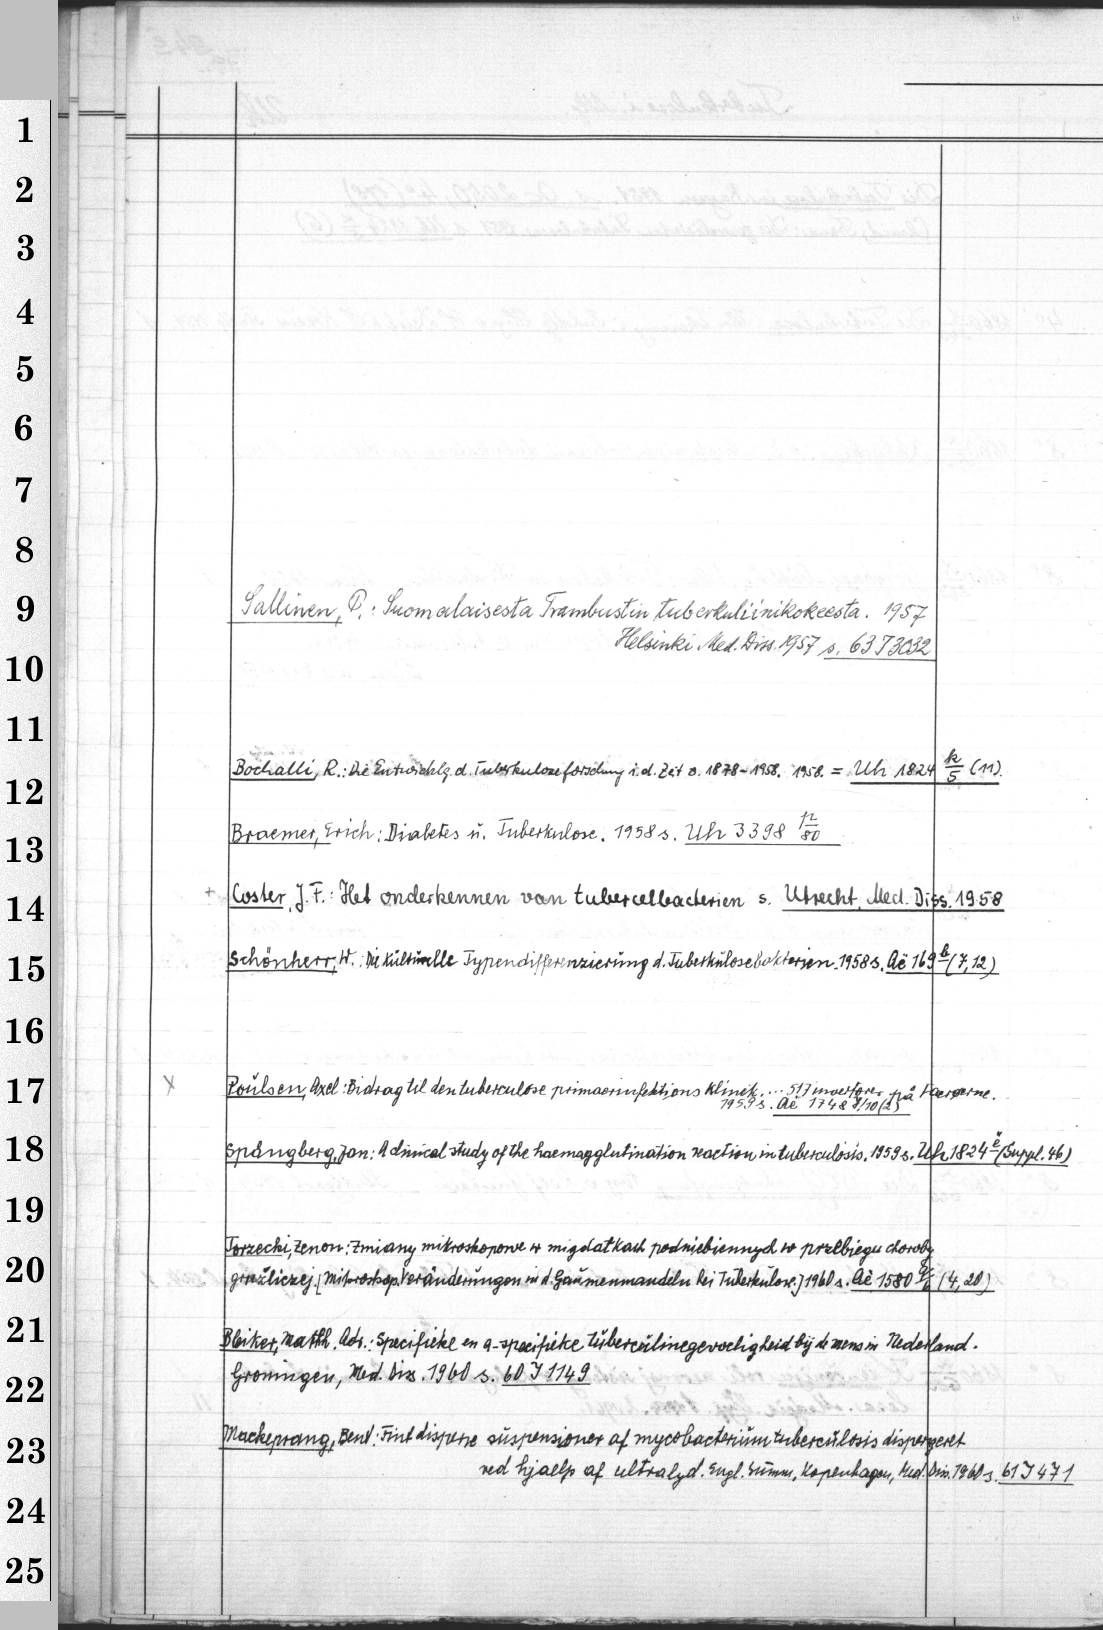 1
2
3
4
5
6
7
8
9
10
11
12
13
14
15
16
17
18
19
20
21
22
23
24
25
Sallinen, P.: Suomalaisesta Trambustin tuberkuliinikokeesta. 1957
Helsinki Med. Diss. 1957 s. 63 J 3032
Bochalli, R.: Die Entwicklg. d. Tuberkuloseforschung i. d. Zeit v. 1878-1958. 1958. = Uh 1824 k/5 (11).
Braemer, Erich: Diabetes u. Tuberkulose. 1958 s. Uh 3398 n/80
+ Coster, J. F.: Het onderkennen van tubercelbacterien s. Utrecht, Med. Diss. 1958
Schönherr, W.: Die kulturelle Typendifferenzierung d. Tuberkulosebakterien. 1958 s. Aë 169 (7,12)
x Poulsen, Axel: Bidrag til den tuberculøse primaerinfektions Klinik. ... 517 invertorer på Faerøerne.
1959 s. Aë 1748 8/10 (2)
Spångberg, Jan: A clinical study of the haemagglutination reaction in tuberculosis. 1959 s. Uh 1824 ë (Suppl. 46)
Torzecki, Zenon: Zmiany mikroskopowe w migdatkach podniebiennych w przebiegu choroby
gruźliczej. [Mikroskop. Veränderungen in d. Gaumenmandeln bei Tuberkulose.] 1960 s. Aë 1580 (4,20)
Bleiker, Matth. Adr.: Specifieke en a-specifieke tuberculinegevoeligheid bij de mens in Nederland.
Groningen, Med. Diss. 1960 s. 60 J 1149
Mackeprang, Bent: Fint disperse suspensioner af mycobacterium tuberculosis dispergeret
ved hjaelp af ultralyd. Engl. Summ., Kopenhagen, Med. Diss. 1960 s. 61 J 471